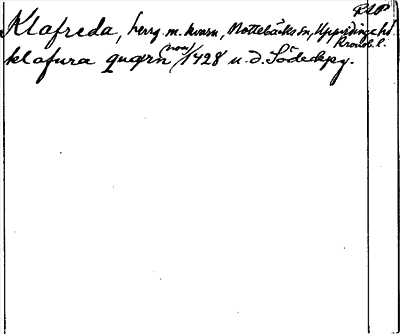 RAP
Klafreda, herrg. m. kvarn, Nottebäcks sn, Uppvidinge hd.
Kronob. l.
klafura quærn (nov) 1428 u. d.